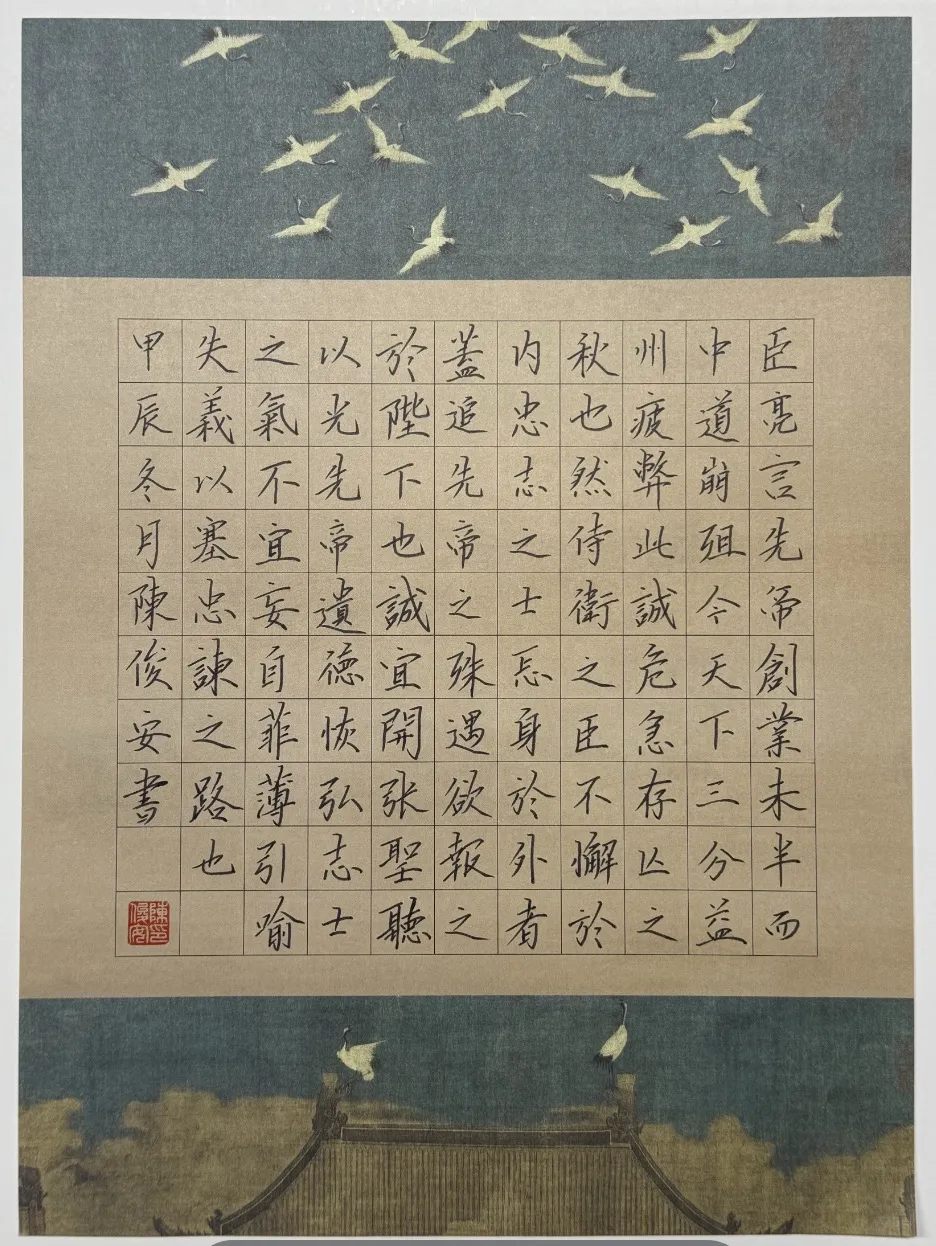 臣亮言先帝創業未半而
中道崩殂今天下三分益
州疲弊此誠危急存亡之
秋也然侍衛之臣不懈於
内忠志之士忘身於外者
蓋追先帝之殊遇欲報之
於陛下也誠宜開張聖聽
以光先帝遺德恢弘志士
之氣不宜妄自菲薄引喻
失義以塞忠諫之路也
甲辰冬月陳俊安書
陳俊安印